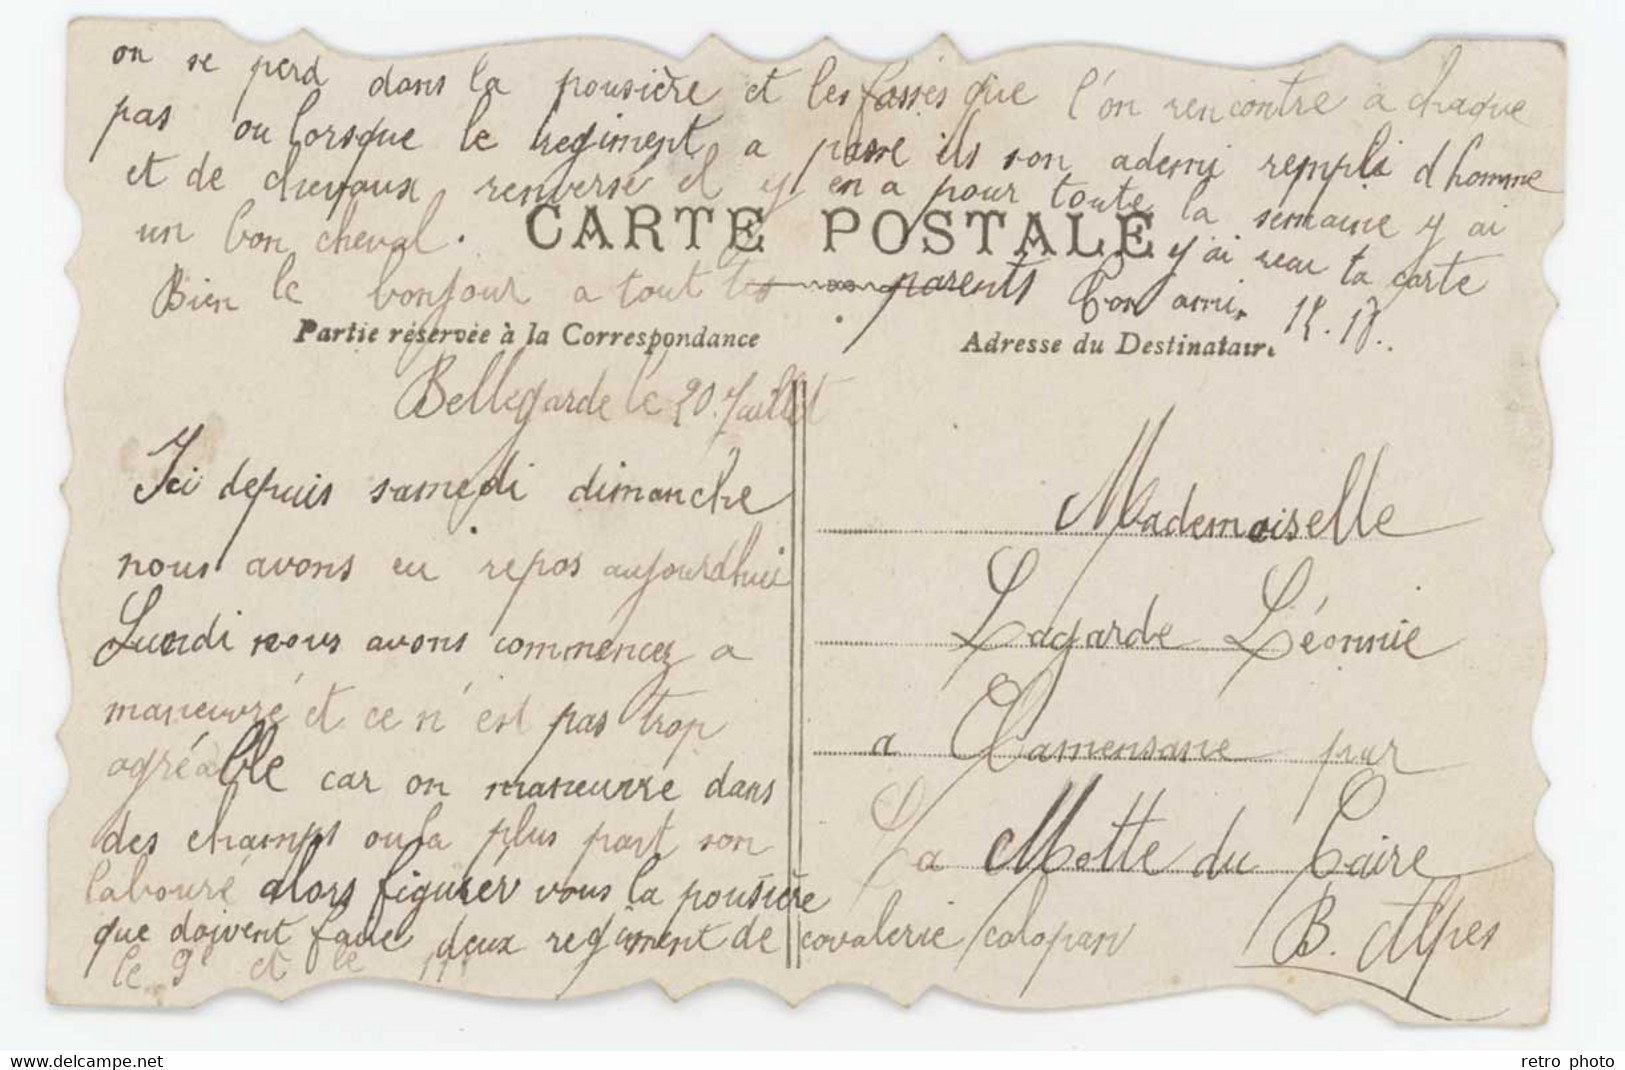 on se perd dans la pousière et les fossés que l'on rencontre a chaque
pas ou lorsque le regiment a passé ils son ademi rempli d homme
et de chevaux renversé il y en a pour toute la semaine y ai
un bon cheval.
CARTE POSTALE
y'ai reau ta carte
Bien le bonjour a tout tes parents ton ami. 15.18.
Partie réservée à la Correspondance
Adresse du Destinataire
Bellegarde le 20 Juillet
Ici depuis samedi dimanche
nous avons eu repos aujourdhui
Lundi nous avons commencez a
maneuvré et ce n'est pas trop
agréable car on maneuvre dans
des champs ou la plus part son
labouré alors figurer vous la pousière
que doivent faire deux regiment de cavalerie galopan
le 9e et le 11e
Mademoiselle
Lagarde Léonnie
a Clamensane par
La Motte du Caire
B. Alpes
www.delcampe.net
retro photo